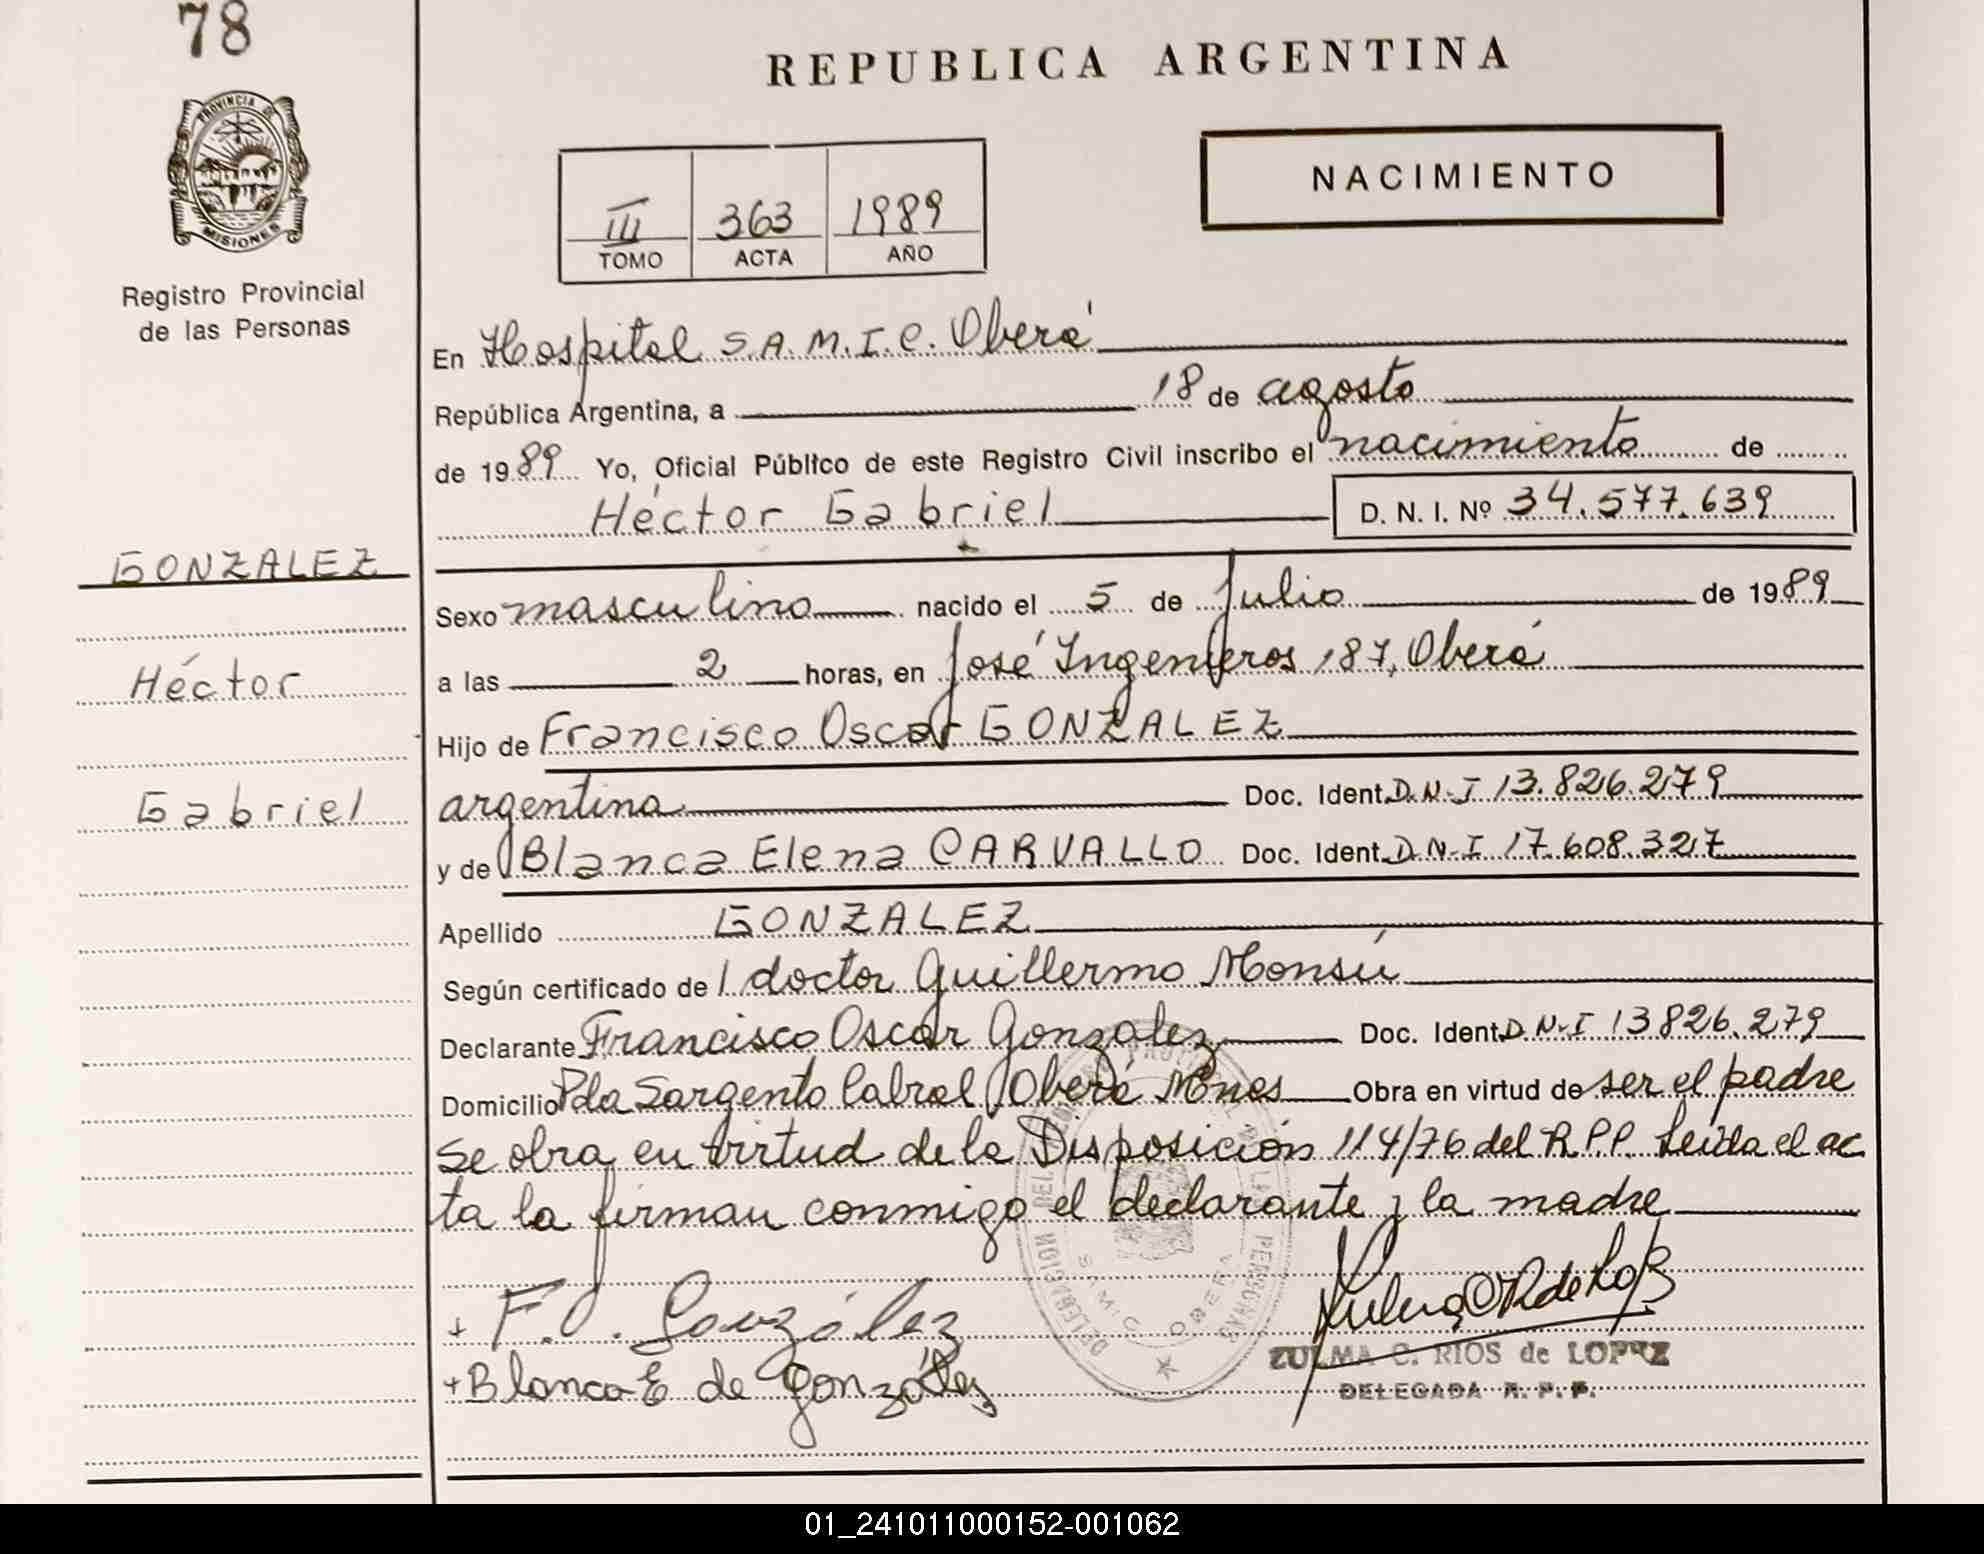 78
REPUBLICA ARGENTINA
PROVINCIA DE
MISIONES
NACIMIENTO
III 363 1989
TOMO ACTA AÑO
Registro Provincial
de las Personas
En Hospital S.A.M.I.C. Oberá
República Argentina, a 18 de agosto
de 1989 Yo, Oficial Público de este Registro Civil inscribo el nacimiento de
Héctor Gabriel D. N. I. Nº 34.577.639
GONZALEZ
Héctor
Gabriel
Sexo masculino nacido el 5 de Julio de 1989
a las 2 horas, en José Ingenieros 187, Oberá
Hijo de Francisco Oscar GONZALEZ
argentina Doc. Ident. D.N.I 13.826.279
y de Blanca Elena CARVALLO Doc. Ident. D.N.I 17.608.327
Apellido GONZALEZ
Según certificado de l doctor Guillermo Monsú
Declarante Francisco Oscar Gonzalez Doc. Ident. D.N.I 13.826.279
Domicilio Pda Sargento Cabral Oberá Mnes Obra en virtud de ser el padre
Se obra en virtud de la Disposición 114/76 del R.P.P. Leída el ac
ta la firman conmigo el declarante y la madre
+ F. O. González
+ Blanca E de González
DELEGACION DEL REGISTRO PROVINCIAL DE LAS PERSONAS
SAMIC OBERA
ZULMA C. RIOS de LOPEZ
DELEGADA R. P. P.
01_241011000152-001062